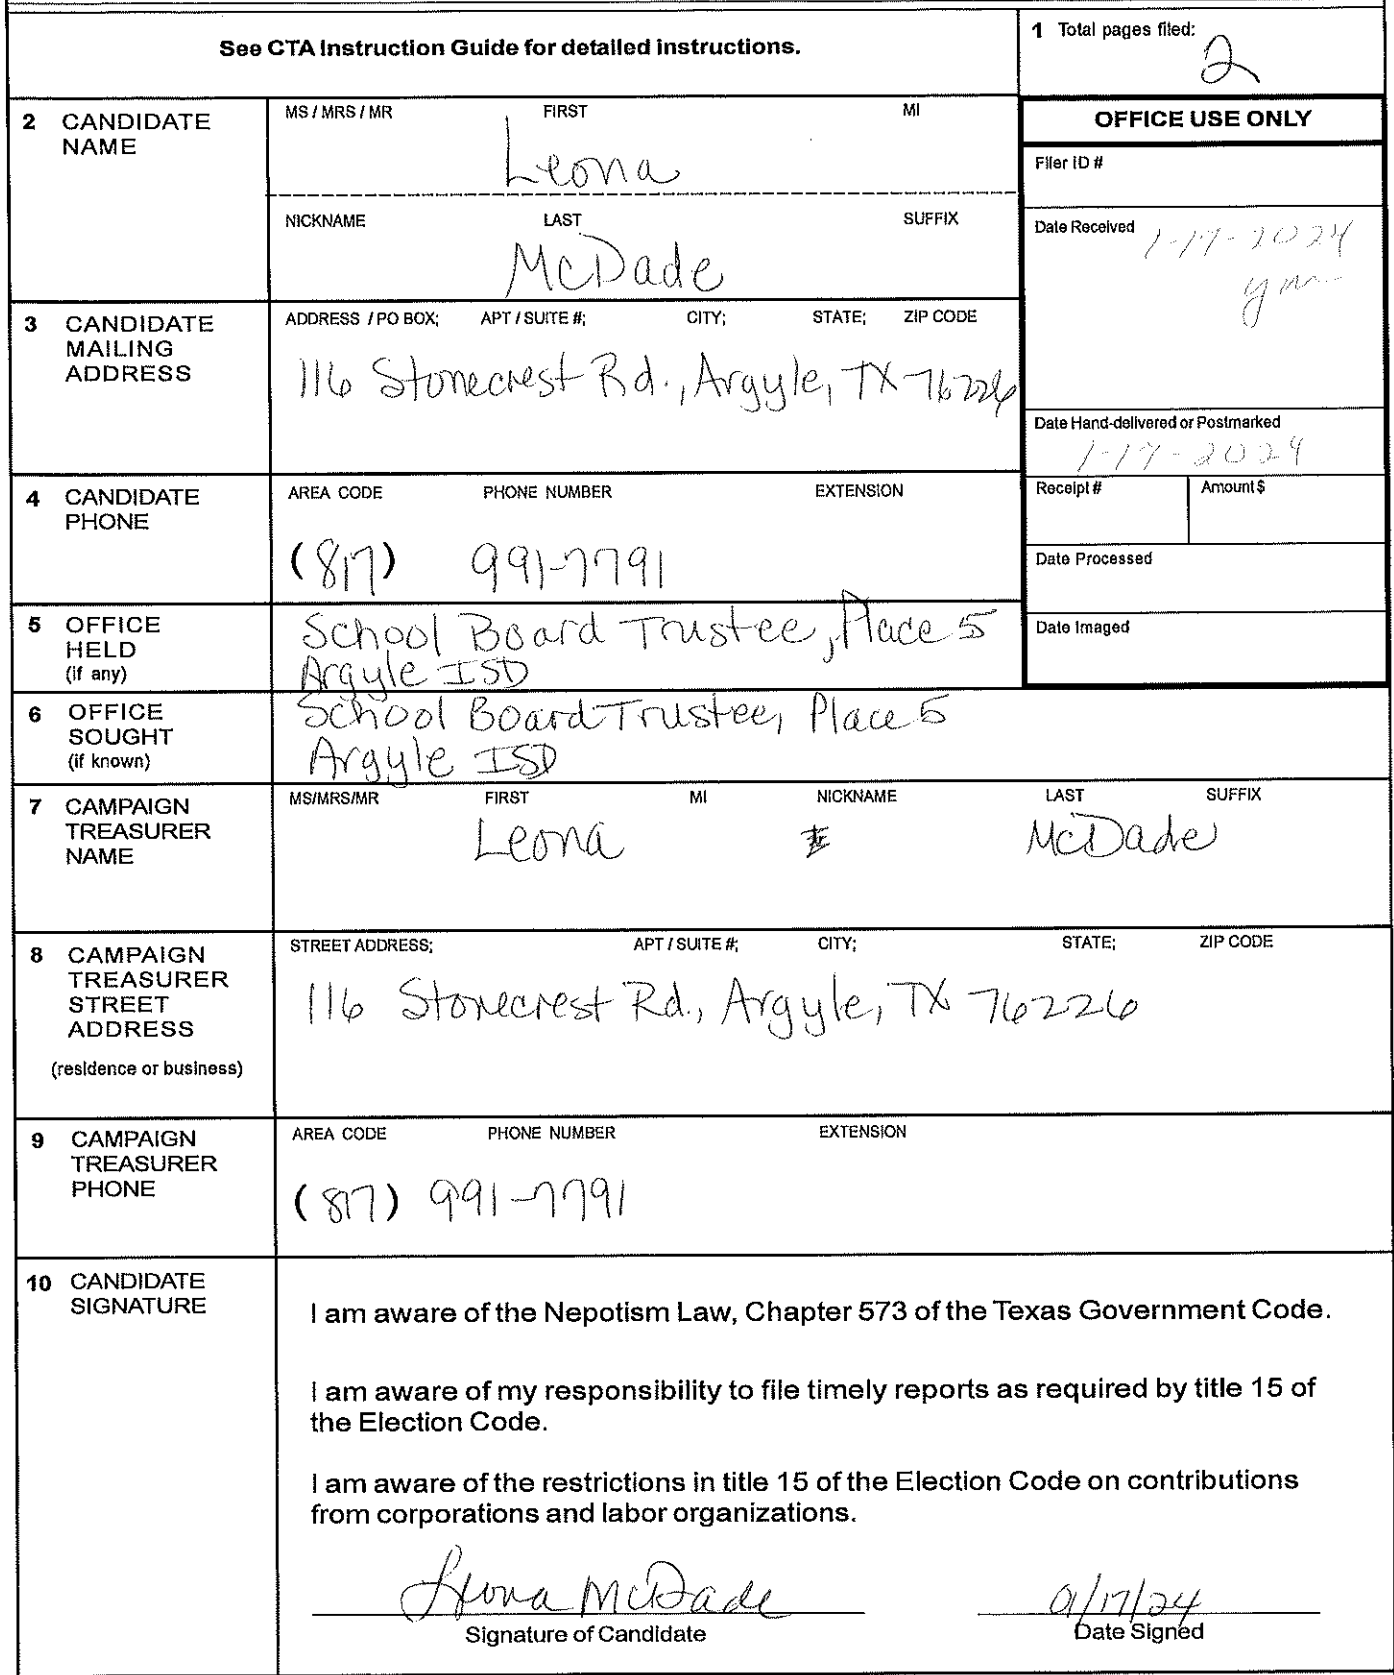 See CTA Instruction Guide for detailed instructions.
1 Total pages filed:
2
2 CANDIDATE NAME
MS / MRS / MR FIRST MI
Leona
NICKNAME LAST SUFFIX
McDade
OFFICE USE ONLY
Filer ID #
Date Received
1-17-2024
ym
3 CANDIDATE MAILING ADDRESS
ADDRESS / PO BOX; APT / SUITE #; CITY; STATE; ZIP CODE
116 Stonecrest Rd., Argyle, TX 76226
Date Hand-delivered or Postmarked
1-17-2024
4 CANDIDATE PHONE
AREA CODE PHONE NUMBER EXTENSION
(817) 991-7791
Receipt # Amount $
Date Processed
Date Imaged
5 OFFICE HELD (if any)
School Board Trustee, Place 5
Argyle ISD
6 OFFICE SOUGHT (if known)
School Board Trustee, Place 5
Argyle ISD
7 CAMPAIGN TREASURER NAME
MS/MRS/MR FIRST MI NICKNAME LAST SUFFIX
Leona McDade
8 CAMPAIGN TREASURER STREET ADDRESS
(residence or business)
STREET ADDRESS; APT / SUITE #; CITY; STATE; ZIP CODE
116 Stonecrest Rd., Argyle, TX 76226
9 CAMPAIGN TREASURER PHONE
AREA CODE PHONE NUMBER EXTENSION
(817) 991-7791
10 CANDIDATE SIGNATURE
I am aware of the Nepotism Law, Chapter 573 of the Texas Government Code.
I am aware of my responsibility to file timely reports as required by title 15 of
the Election Code.
I am aware of the restrictions in title 15 of the Election Code on contributions
from corporations and labor organizations.
Leona McDade 01/17/24
Signature of Candidate Date Signed